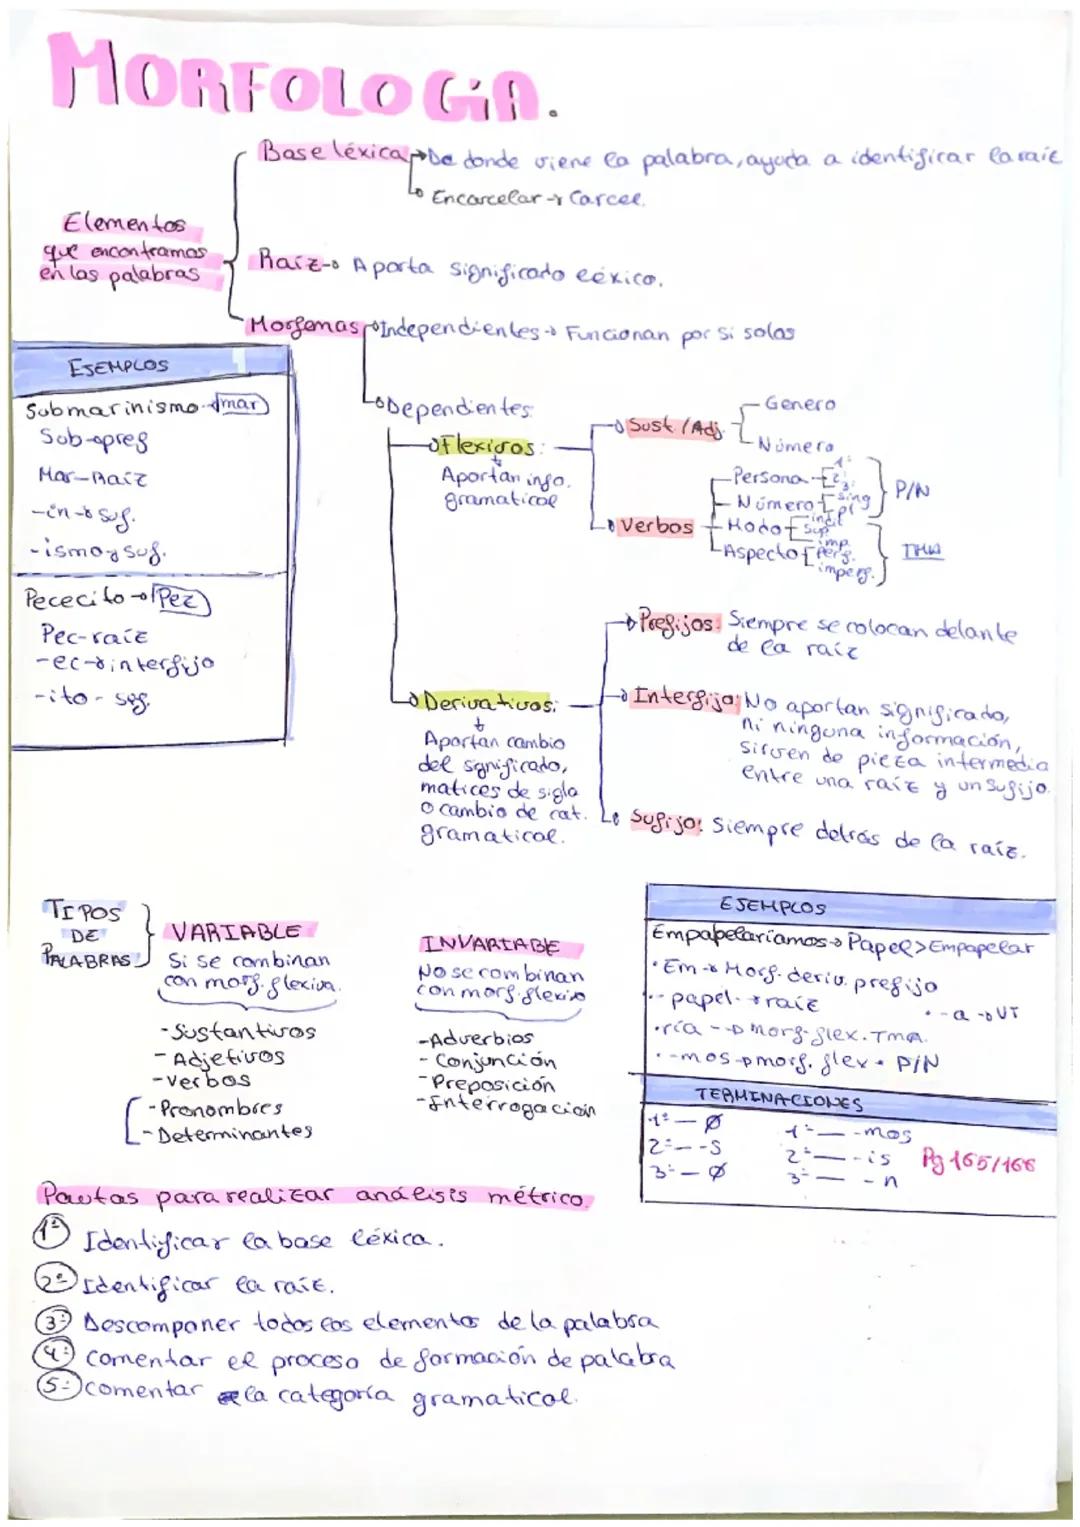 MORFOLOGÍA.
Base léxica → De donde viene la palabra, ayuda a identificar la raíz
→ Encarcelar → Carcel.
Elementos
que encontramos
en las palabras
Raíz → Aporta significado léxico.
Morfemas → Independientes → Funcionan por si solos
EJEMPLOS
Submarinismo → mar
Sub → pref
Mar - Raíz
-in → suf.
-ismo → suf.
Pececito → Pez
Pec - raíz
-ec → interfijo
-ito - suf.
→ Dependientes:
→ Flexivos:
Aportan info.
gramatical
→ Sust. / Adj.
Genero
Número
→ Verbos
Persona 1ª 2ª 3ª
Número sing pl
P/N
Modo indic sup imp.
Aspecto perf. imperf.
TMA
→ Derivativos:
Aportan cambio
del significado,
matices de sigla
o cambio de cat.
gramatical.
→ Prefijos: Siempre se colocan delante
de la raíz
→ Interfijo: No aportan significado,
ni ninguna información,
sirven de pieza intermedia
entre una raíz y un sufijo.
→ Sufijo: Siempre detrás de la raíz.
TIPOS
DE
PALABRAS
VARIABLE
Si se combinan
con morf. flexivo.
-Sustantivos
-Adjetivos
-Verbos
-Pronombres
-Determinantes
INVARIABLE
No se combinan
con morf. flexivo
-Adverbios
-Conjunción
-Preposición
-Interrogación
EJEMPLOS
Empapelaríamos → Papel > Empapelar
· Em → Morf. deriv. prefijo
·- papel- → raíz
· -a → VT
· ría - → morf. flex. TMA.
· -mos → morf. flex. P/N
TERMINACIONES
1ª — Ø
2ª — -s
3ª — Ø
1ª — -mos
2ª — -is
3ª — -n
Pg 165/166
Pautas para realizar análisis métrico.
1º Identificar la base léxica.
2º Identificar la raíz.
3º Descomponer todos los elementos de la palabra
4º Comentar el proceso de formación de palabra
5º comentar la categoría gramatical.